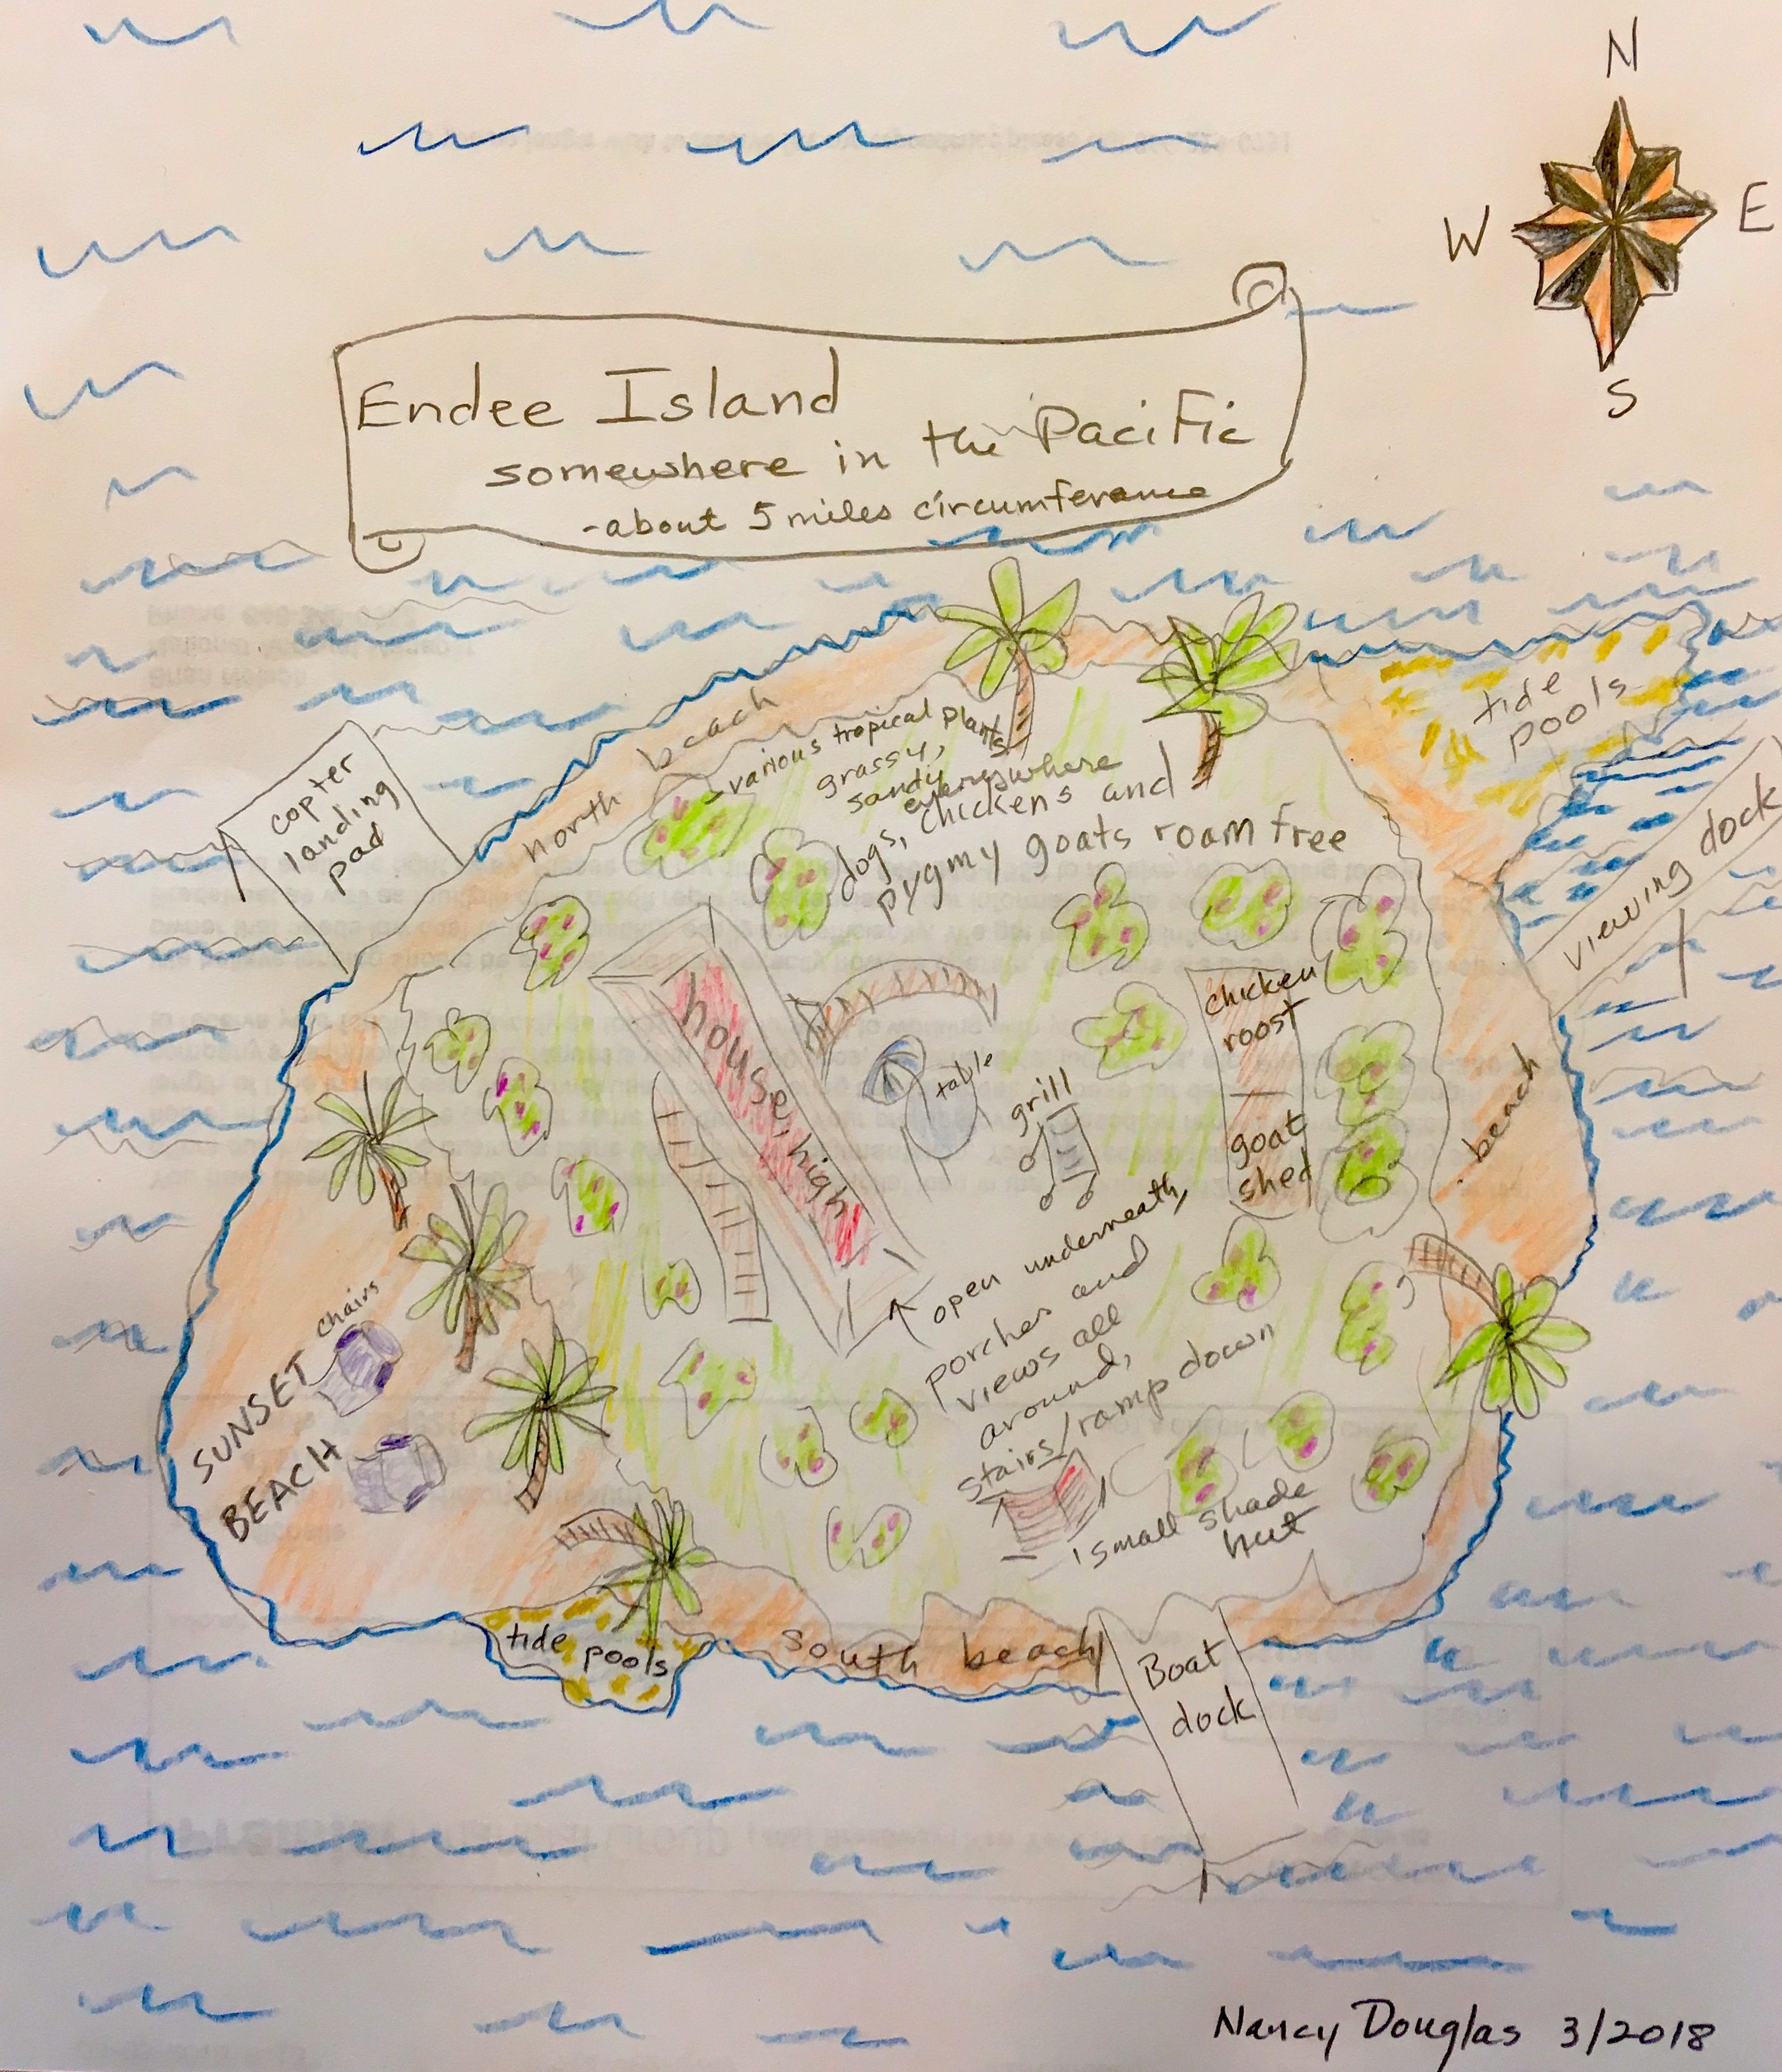 N
W
E
S
Endee Island
somewhere in the Pacific
-about 5 miles circumference
tide
pools
copter
landing
pad
north beach
various tropical plants,
grassy,
sandy
everywhere
dogs, chickens and
pygmy goats roam free
viewing dock
house, high
table
grill
chicken
roost
goat
shed
beach
open underneath,
porches and
views all
around,
stairs/ramp down
chairs
SUNSET
BEACH
small shade
hut
tide pools
south beach
Boat
dock
Nancy Douglas 3/2018